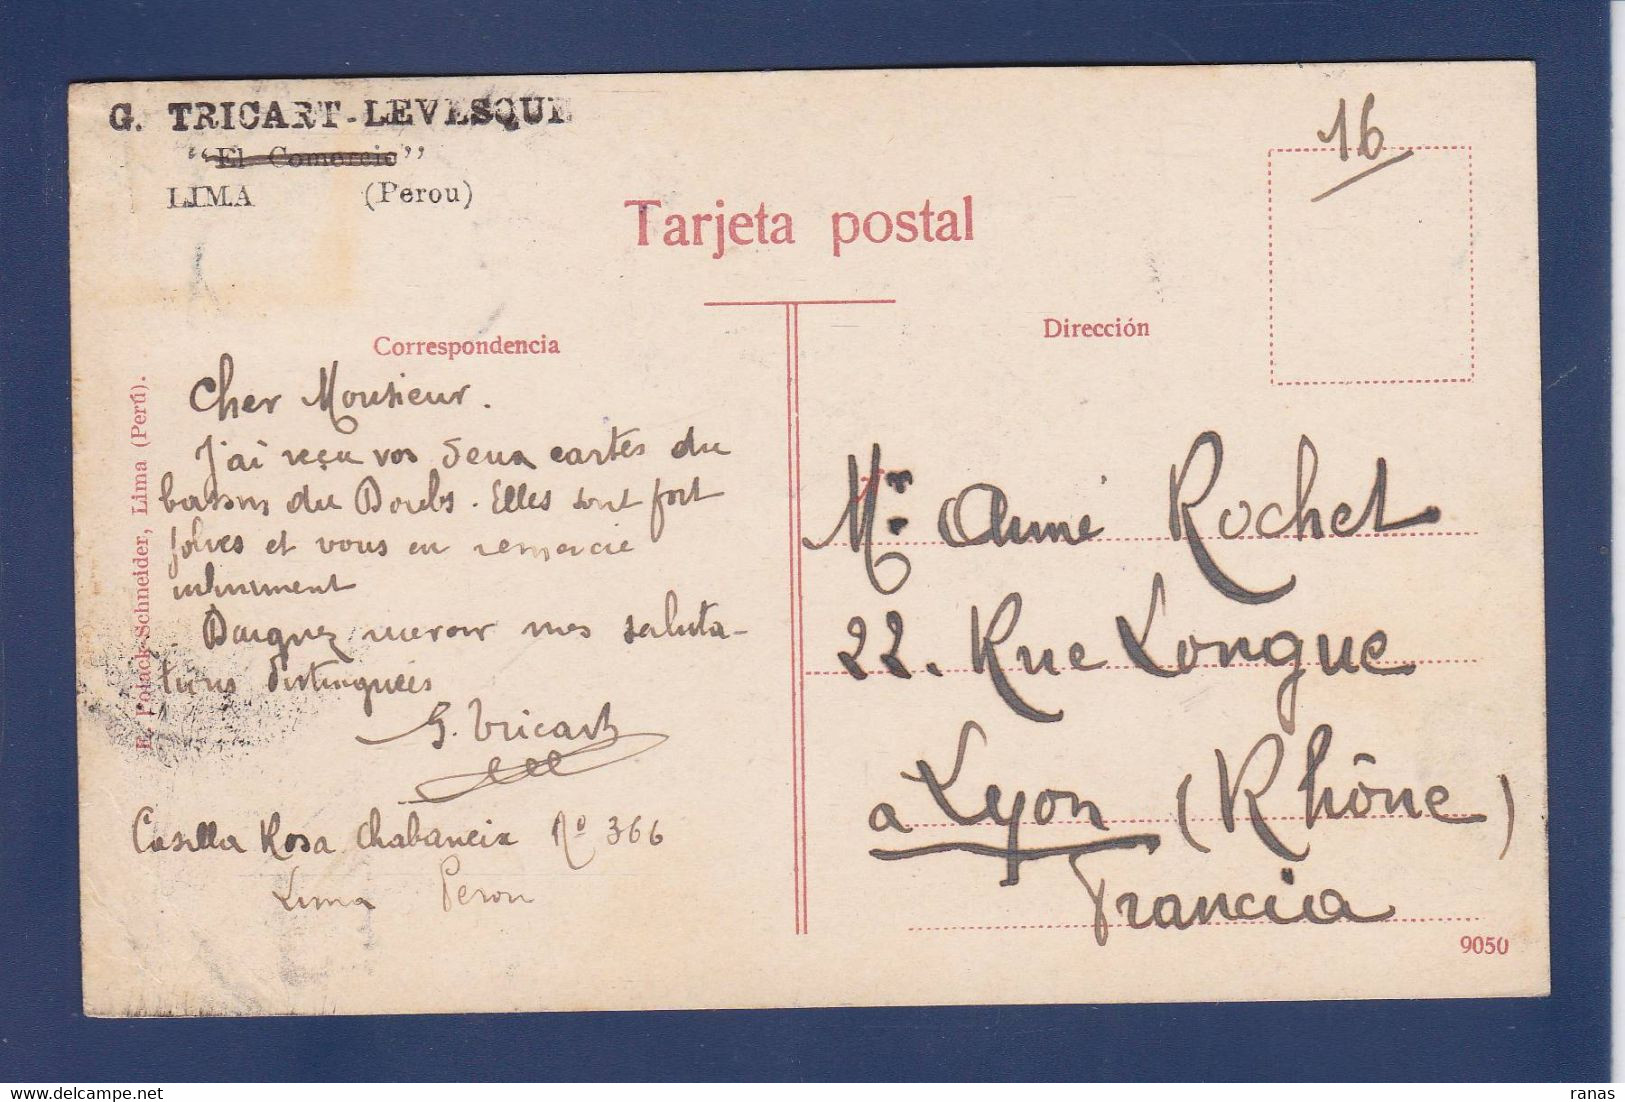 G. TRICART-LEVESQUE
"El Comercio"
LIMA (Perou)
16
Tarjeta postal
Correspondencia
Dirección
Cher Monsieur.
J'ai reçu vos deux cartes du
bassin du Doubs. Elles sont fort
jolies et vous en remercie
infiniment
Daignez recevoir mes saluta-
tions distinguées
G. Tricart
Casilla Rosa Chabaneix Nº 366
Lima Perou
E. Polack-Schneider, Lima (Perú).
Mr. Aimé Rochet
22. Rue Longue
a Lyon (Rhône)
Francia
9050
ranas